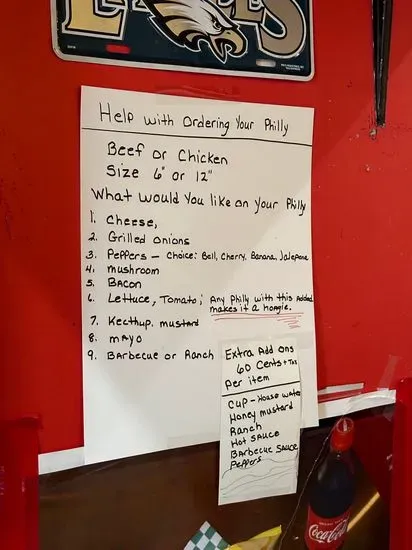 EAGLES
Help with Ordering Your Philly
Beef or Chicken
Size 6" or 12"
What would You like on your Philly
1. Cheese,
2. Grilled onions
3. Peppers - Choice: Bell, Cherry, Banana, Jalepeno
4. mushroom
5. Bacon
6. Lettuce, Tomato; Any Philly with this added
makes it a hoagie.
7. Kecthup. mustard
8. mayo
9. Barbecue or Ranch
Extra Add ons
60 Cents + Tax
Per item
Cup - House water
Honey mustard
Ranch
Hot sauce
Barbecue Sauce
Peppers
Coca-Cola